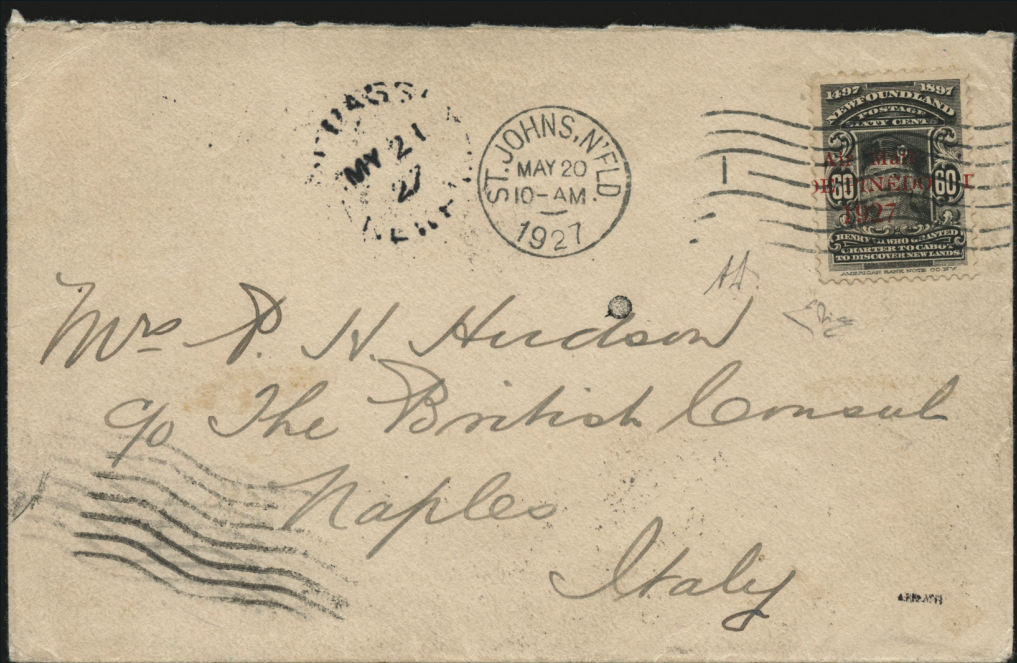 MY 21
27
ST. JOHNS, N'FLD.
MAY 20
10-AM.
1927
1
1497 1897
NEWFOUNDLAND
POSTAGE
SIXTY CENTS
Air Mail
DE PINEDO
1927
60 60
HENRY VII WHO GRANTED
CHARTER TO CABOT
TO DISCOVER NEW LANDS
AMERICAN BANK NOTE CO. N.Y.
Mrs P. H. Hudson
c/o The British Consul
Naples
Italy